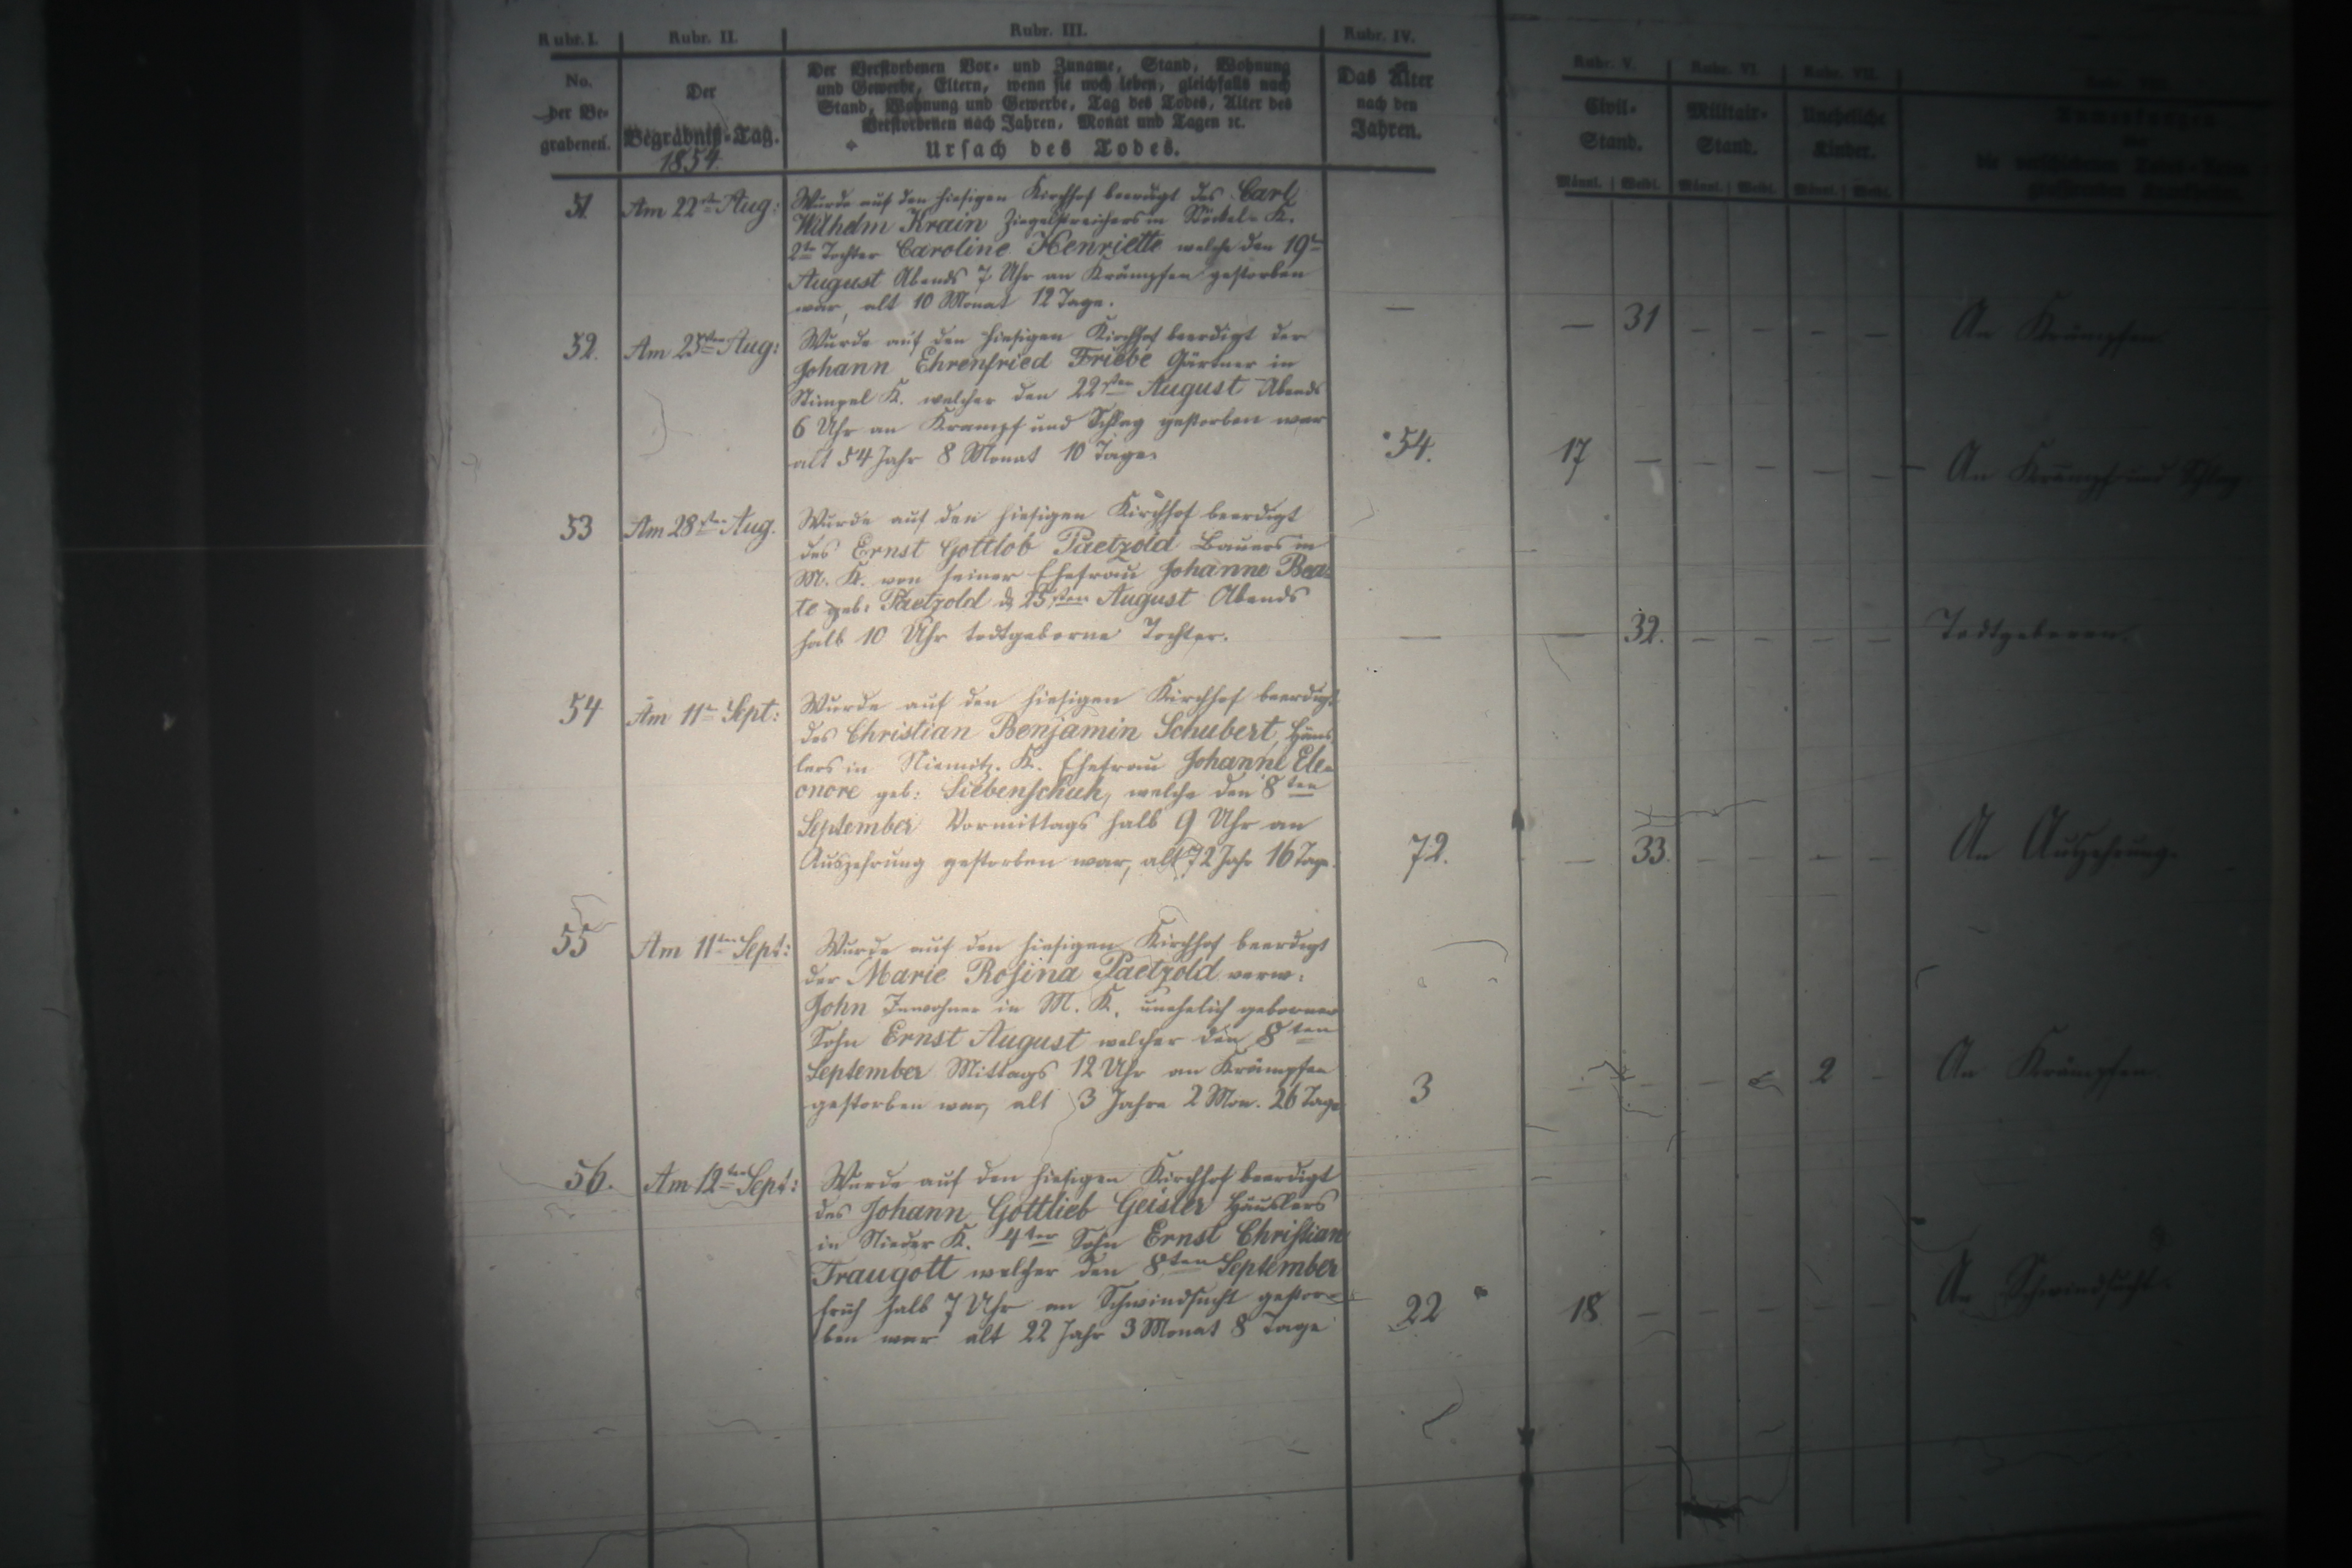 Rubr. I. Rubr. II. Rubr. III. Rubr. IV.
No. der Begrabenen.
Der Begräbniß-Tag. 1854.
Der Verstorbenen Vor- und Zuname, Stand, Wohnung
und Gewerbe, Eltern, wenn sie noch leben, gleichfalls nach
Stand, Wohnung und Gewerbe, Tag des Todes, Alter des
Verstorbenen nach Jahren, Monat und Tagen ꝛc.
Ursach des Todes.
Das Alter
nach den
Jahren.
Rubr. V. Rubr. VI. Rubr. VII.
Civil-Stand. Militair-Stand. Uneheliche Kinder.
Männl. Weibl. Männl. Weibl. Männl. Weibl.
51 Am 22ten Aug: Wurde auf den hiesigen Kirchhof beerdigt des Carl
Wilhelm Krain Ziegelstreichers in K.
2te Tochter Caroline Henriette welche den 19t
August Abends 7 Uhr an Krämpfen gestorben
war, alt 10 Monat 12 Tage. — — 31 — — — — An Krämpfen.
52. Am 25sten Aug: Wurde auf den hiesigen Kirchhof beerdigt der
Johann Ehrenfried Friebe Gärtner in
K. welcher den 22sten August Abends
6 Uhr an Krampf und Schlag gestorben war
alt 54 Jahr 8 Monat 10 Tage. 54. 17 — — — — — An Krampf und Schlag
53 Am 28sten Aug. Wurde auf den hiesigen Kirchhof beerdigt
des Ernst Gottlob Paetzold Bauers in
M. K. von seiner Ehefrau Johanne Bea-
te geb: Paetzold d. 25sten August Abends
halb 10 Uhr todtgeborne Tochter. — — 32. — — — — Todtgeboren.
54 Am 11t Sept: Wurde auf den hiesigen Kirchhof beerdigt
des Christian Benjamin Schubert, Häus-
lers in K. Ehefrau Johanne Ele-
onore geb: Siebenschuh, welche den 8ten
September Vormittags halb 9 Uhr an
Auszehrung gestorben war, alt 72 Jahr 16 Tage. 72. — 33. — — — — An Auszehrung.
55 Am 11ten Sept: Wurde auf den hiesigen Kirchhof beerdigt
der Marie Rosina Paetzold verw:
John Inwohner in M. K. unehelich geborner
Sohn Ernst August welcher den 8ten
September Mittags 12 Uhr an Krämpfen
gestorben war, alt 3 Jahre 2 Mon. 26 Tage 3 — — — — 2 — An Krämpfen.
56. Am 12ten Sept: Wurde auf den hiesigen Kirchhof beerdigt
des Johann Gottlieb Geisler Häuslers
in Nieder K. 4ter Sohn Ernst Christian
Traugott welcher den 8ten September
früh halb 7 Uhr an Schwindsucht gestor-
ben war alt 22 Jahr 3 Monat 8 Tage 22 18 — — — — — An Schwindsucht.